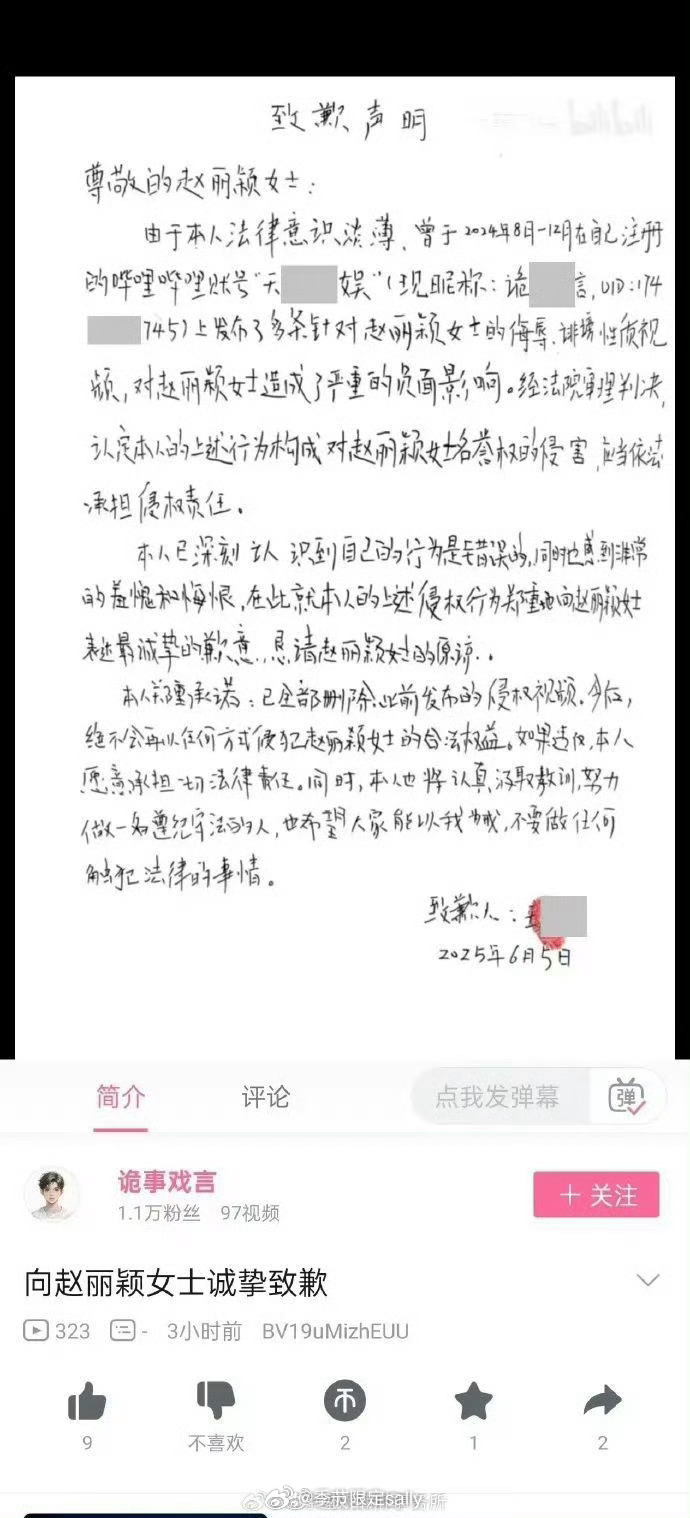 致歉声明
bilibili
尊敬的赵丽颖女士：
由于本人法律意识淡薄，曾于2024年8月-12月在自己注册
的哔哩哔哩账号“天 娱”（现昵称：诡 言，UID：174
745）上发布了多条针对赵丽颖女士的侮辱、诽谤性质视
频，对赵丽颖女士造成了严重的负面影响。经法院审理判决，
认定本人的上述行为构成对赵丽颖女士名誉权的侵害，应当依法
承担侵权责任。
本人已深刻认识到自己的行为是错误的，同时也感到非常
的羞愧和悔恨，在此就本人的上述侵权行为郑重地向赵丽颖女士
表达最诚挚的歉意，恳请赵丽颖女士的原谅．.
本人郑重承诺：已全部删除此前发布的侵权视频。今后，
绝不会再以任何方式侵犯赵丽颖女士的合法权益。如果违反，本人
愿意承担一切法律责任。同时，本人也将认真汲取教训，努力
做一名遵纪守法的人，也希望大家能以我为戒，不要做任何
触犯法律的事情。
致歉人：王
2025年6月5日
简介 评论 点我发弹幕 弹
诡事戏言
1.1万粉丝 97视频
＋ 关注
向赵丽颖女士诚挚致歉
323 - 3小时前 BV19uMizhEUU
9 不喜欢 2 1 2
@季节限定sally
务所